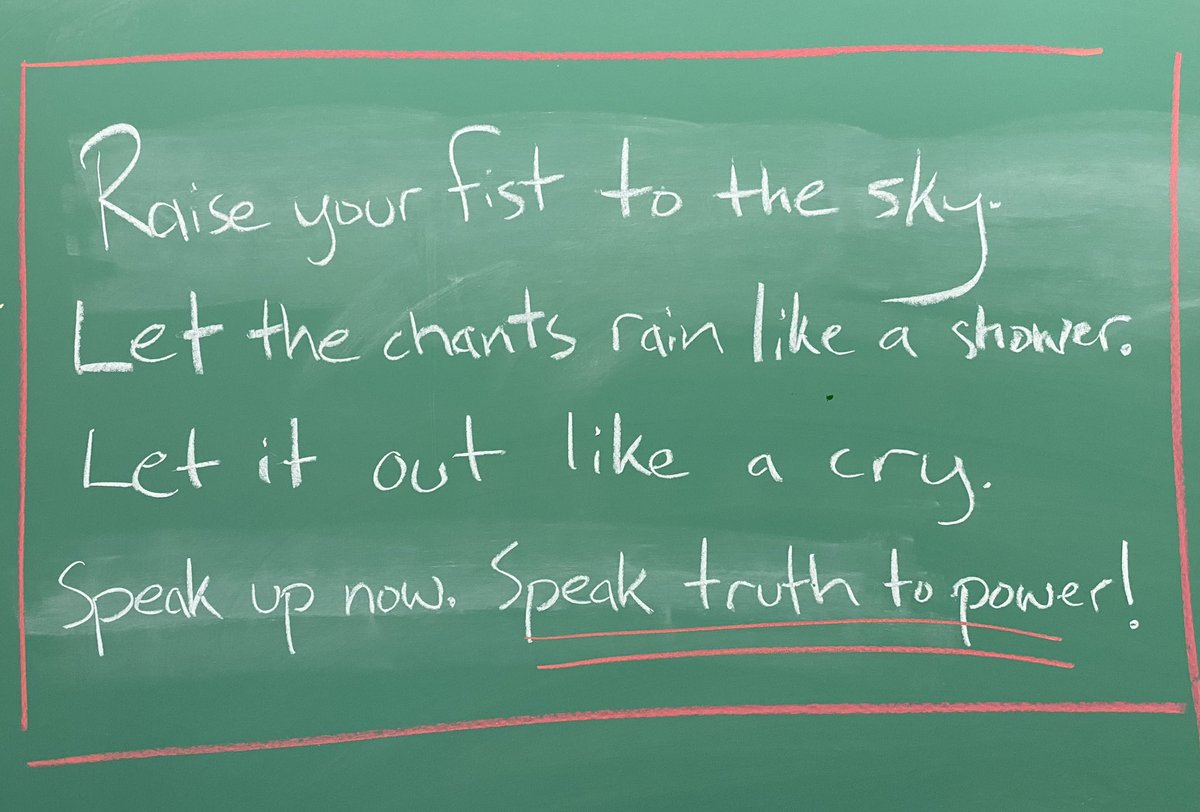 Raise your fist to the sky.
Let the chants rain like a shower.
Let it out like a cry.
Speak up now. Speak truth to power!